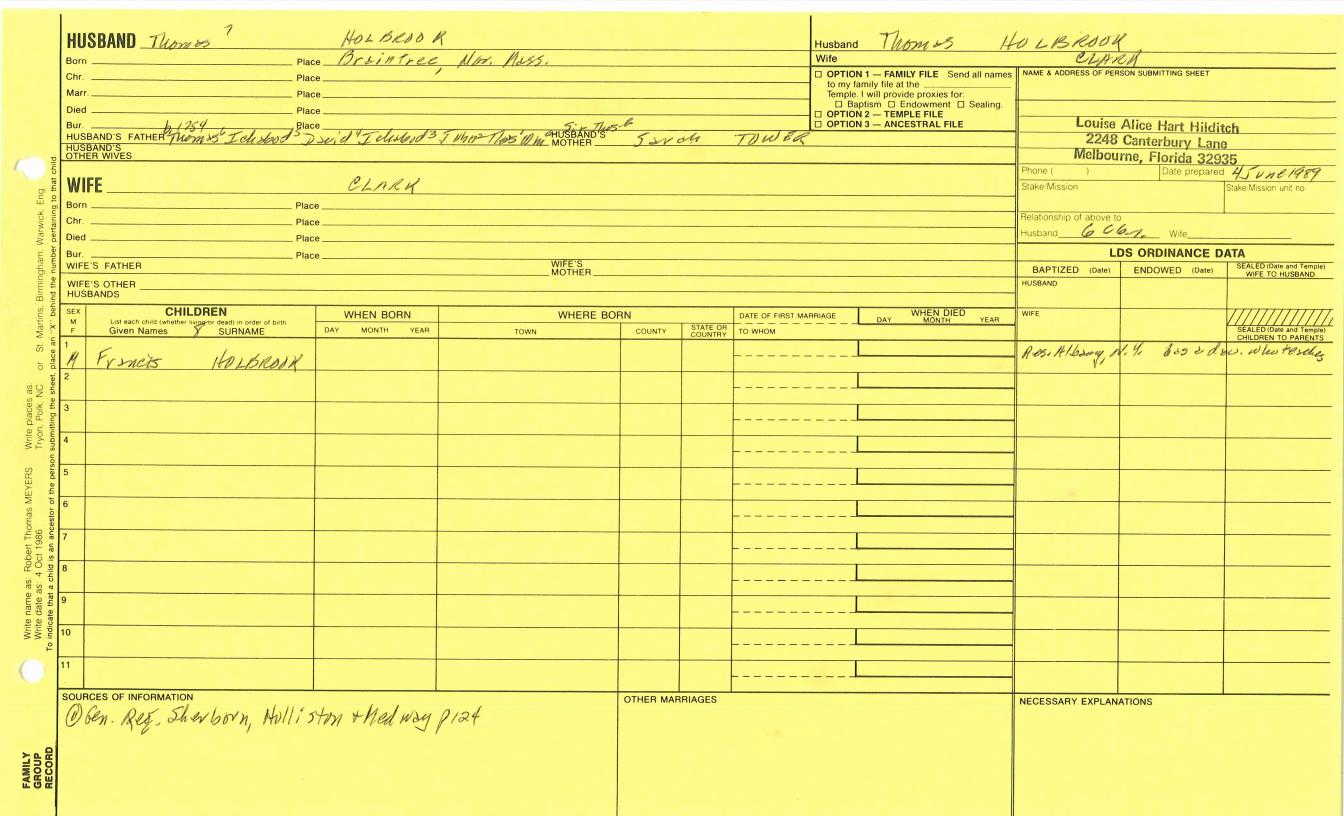 HUSBAND Thomas 7 HOLBROOK
Born Place Braintree, Nor. Mass.
Chr. Place
Marr. Place
Died Place
Bur. Place
b 1754
HUSBAND'S FATHER Thomas6 Ichabod5 David4 Ichabod3 John2 Thos HUSBAND'S MOTHER Sarah TOWER
HUSBAND'S OTHER WIVES
Husband Thomas HOLBROOK
Wife CLARK
☐ OPTION 1 — FAMILY FILE Send all names
to my family file at the
Temple. I will provide proxies for:
☐ Baptism ☐ Endowment ☐ Sealing.
☐ OPTION 2 — TEMPLE FILE
☐ OPTION 3 — ANCESTRAL FILE
NAME & ADDRESS OF PERSON SUBMITTING SHEET
Louise Alice Hart Hilditch
2248 Canterbury Lane
Melbourne, Florida 32935
Phone ( ) Date prepared 4 June 1989
Stake/Mission Stake/Mission unit no
Relationship of above to
Husband 6 C 6 r. Wife
WIFE CLARK
Born Place
Chr. Place
Died Place
Bur. Place
WIFE'S FATHER WIFE'S MOTHER
WIFE'S OTHER HUSBANDS
LDS ORDINANCE DATA
BAPTIZED (Date) ENDOWED (Date) SEALED (Date and Temple) WIFE TO HUSBAND
HUSBAND
WIFE
SEALED (Date and Temple) CHILDREN TO PARENTS
SEX M F
CHILDREN
List each child (whether living or dead) in order of birth
Given Names SURNAME
WHEN BORN
DAY MONTH YEAR
WHERE BORN
TOWN COUNTY STATE OR COUNTRY
DATE OF FIRST MARRIAGE
TO WHOM
WHEN DIED
DAY MONTH YEAR
1 M Francis HOLBROOK Res. Albany, N.Y. has a dau. who teaches
2
3
4
5
6
7
8
9
10
11
SOURCES OF INFORMATION
① Gen. Reg. Sherborn, Holliston + Medway p 124
OTHER MARRIAGES
NECESSARY EXPLANATIONS
Write name as: Robert Thomas MEYERS Write places as: Tryon, Polk, NC or St. Martins, Birmingham, Warwick, Eng
Write date as: 4 Oct 1986
To indicate that a child is an ancestor of the person submitting the sheet, place an "X" behind the number pertaining to that child.
FAMILY GROUP RECORD